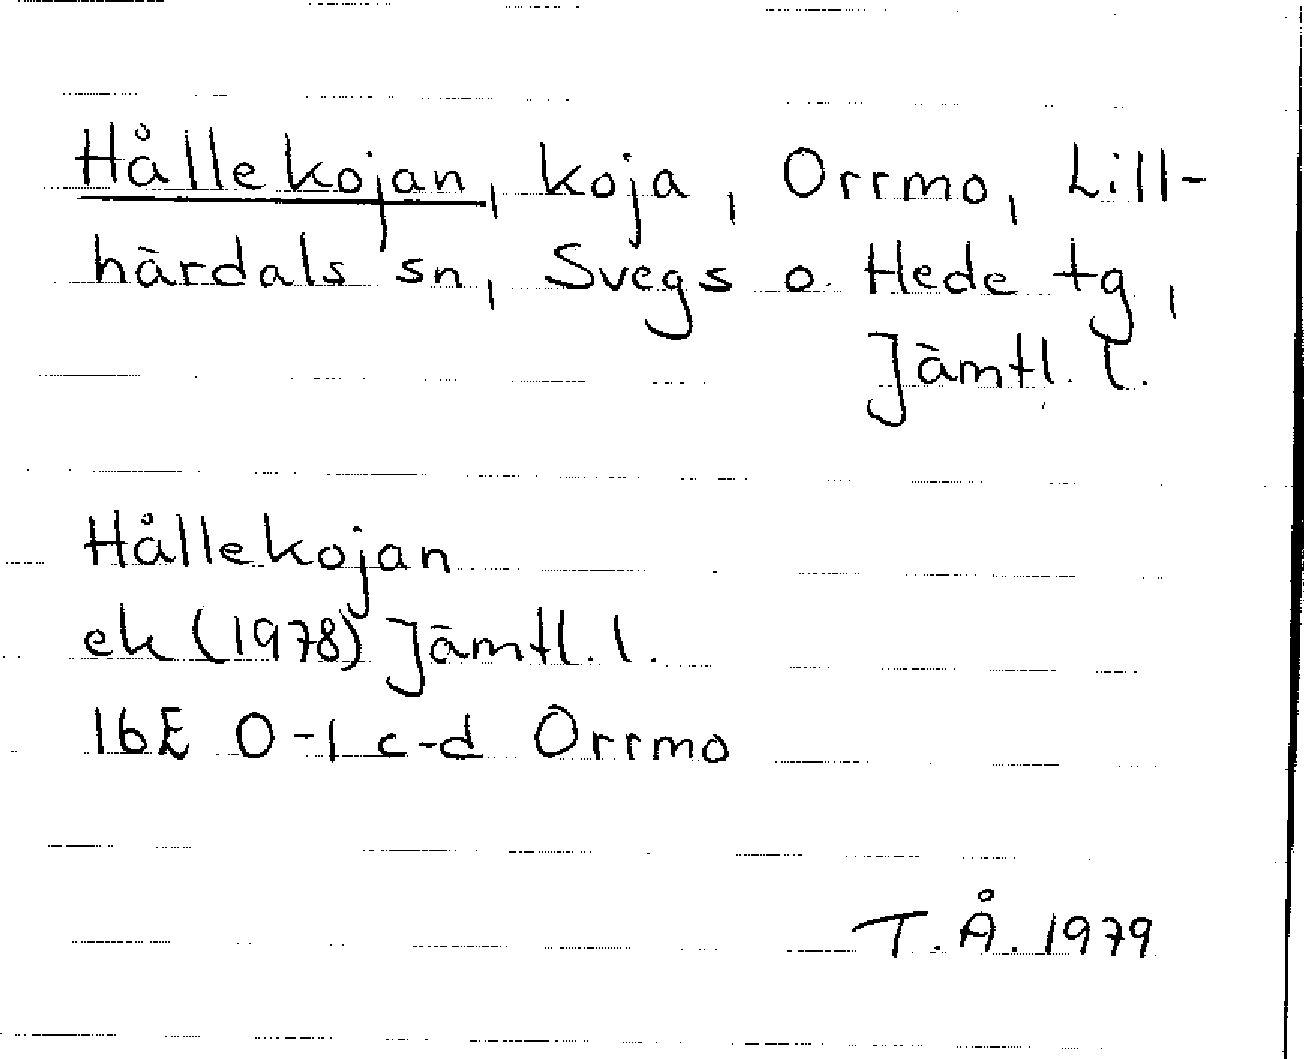 Hållekojan, koja, Orrmo, Lill-
härdals sn, Svegs o. Hede tg,
Jämtl. l.
Hållekojan
ek (1978) Jämtl. l.
16E 0-1 c-d Orrmo
T. Å. 1979